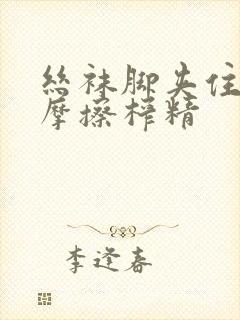 丝袜脚夹住
摩擦榨精
李逢春